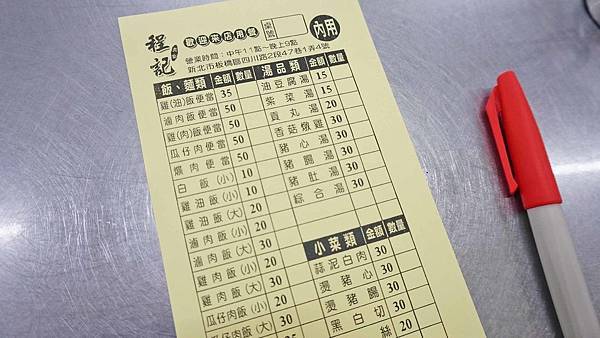 程記
歡迎來店用餐
桌號
內用
營業時間：中午11點~晚上9點
新北市板橋區四川路2段47巷1弄4號
飯、麵類 金額 數量
雞(油)飯便當 35
滷肉飯便當 50
雞(肉)飯便當 50
瓜仔肉便當 50
爌肉便當 50
白飯(小) 10
雞油飯(小) 10
雞油飯(大) 20
滷肉飯(小) 20
滷肉飯(大) 30
雞肉飯(小) 20
雞肉飯(大) 30
瓜仔肉飯(小) 20
瓜仔肉飯(大) 30
湯品類 金額 數量
油豆腐湯 15
紫菜湯 15
貢丸湯 20
香菇燉雞 30
豬心湯 30
豬腸湯 30
豬肚湯 30
綜合湯 30
小菜類 金額 數量
蒜泥白肉 30
燙豬心 30
燙豬腸 30
黑白切 30
絲 20